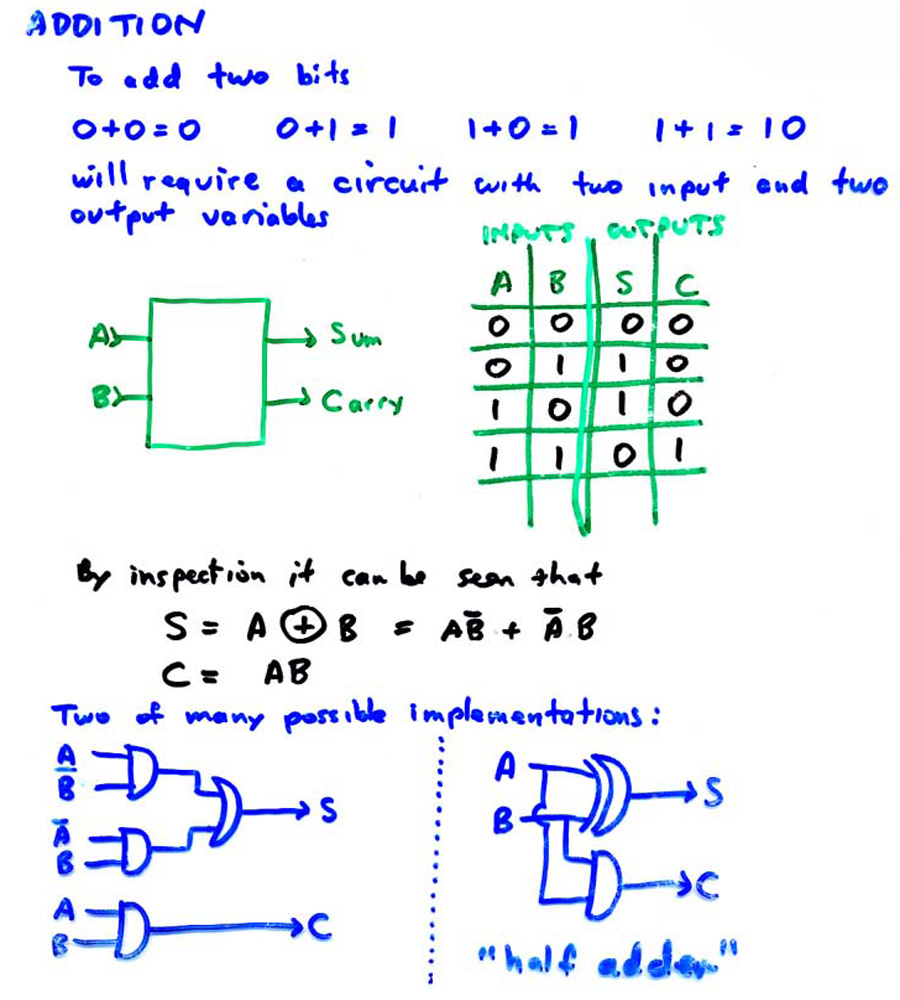 ADDITION
To add two bits
0+0=0 0+1=1 1+0=1 1+1=10
will require a circuit with two input and two
output variables
INPUTS OUTPUTS
A B S C
0 0 0 0
0 1 1 0
1 0 1 0
1 1 0 1
A Sum
B Carry
By inspection it can be seen that
S = A ⊕ B = AB̅ + A̅.B
C = AB
Two of many possible implementations:
A
B̅
S
A̅
B
A
B
C
A
B
S
C
"half adder"